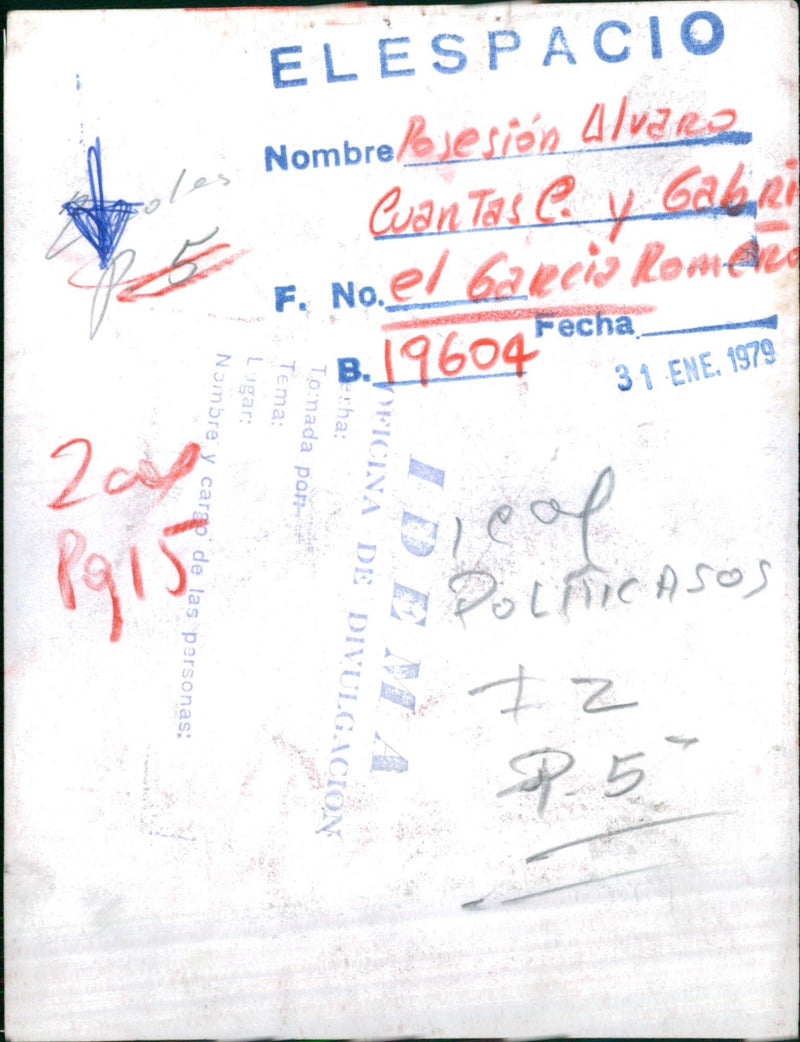 EL ESPACIO
Nombre Posesión Alvaro
Cuantas C. y Gabri
F. No. el Garcia Romero
Fecha
B. 19604
31 ENE. 1979
P. 5
2 col
Pg 15
IDEMA
OFICINA DE DIVULGACION
Fecha:
Tomada por:
Tema:
Lugar:
Nombre y cargo de las personas:
1 col
POLITICASOS
P. 5